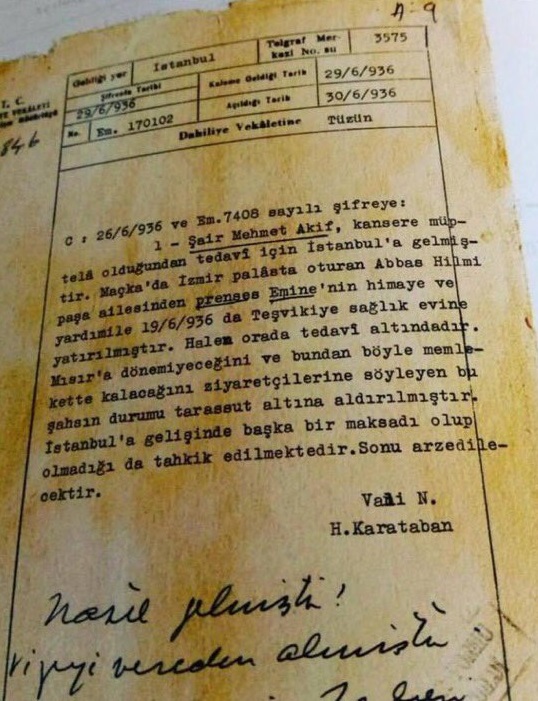 A-9
T. C.
846
Geldiği yer İstanbul
Telgraf Mer-
kezi No. su 3575
Şifrenin Tarihi
29/6/936
Kaleme Geldiği Tarih 29/6/936
Açıldığı Tarih 30/6/936
No. Em. 170102
Dahiliye Vekâletine Tüzün
C : 26/6/936 ve Em.7408 sayılı şifreye:
1 - Şair Mehmet Akif, kansere müp-
telâ olduğundan tedavî için İstanbul'a gelmiş-
tir. Maçka'da İzmir palâsta oturan Abbas Hilmi
paşa ailesinden prenses Emine'nin himaye ve
yardımile 19/6/936 da Teşvikiye sağlık evine
yatırılmıştır. Halen orada tedavî altındadır.
Mısır'a dönemiyeceğini ve bundan böyle memle-
kette kalacağını ziyaretçilerine söyleyen bu
şahsın durumu tarassut altına aldırılmıştır.
İstanbul'a gelişinde başka bir maksadı olup
olmadığı da tahkik edilmektedir.Sonu arzedile-
cektir.
Vali N.
H.Karataban
Nasıl gelmişti!
Vizeyi nereden almıştı